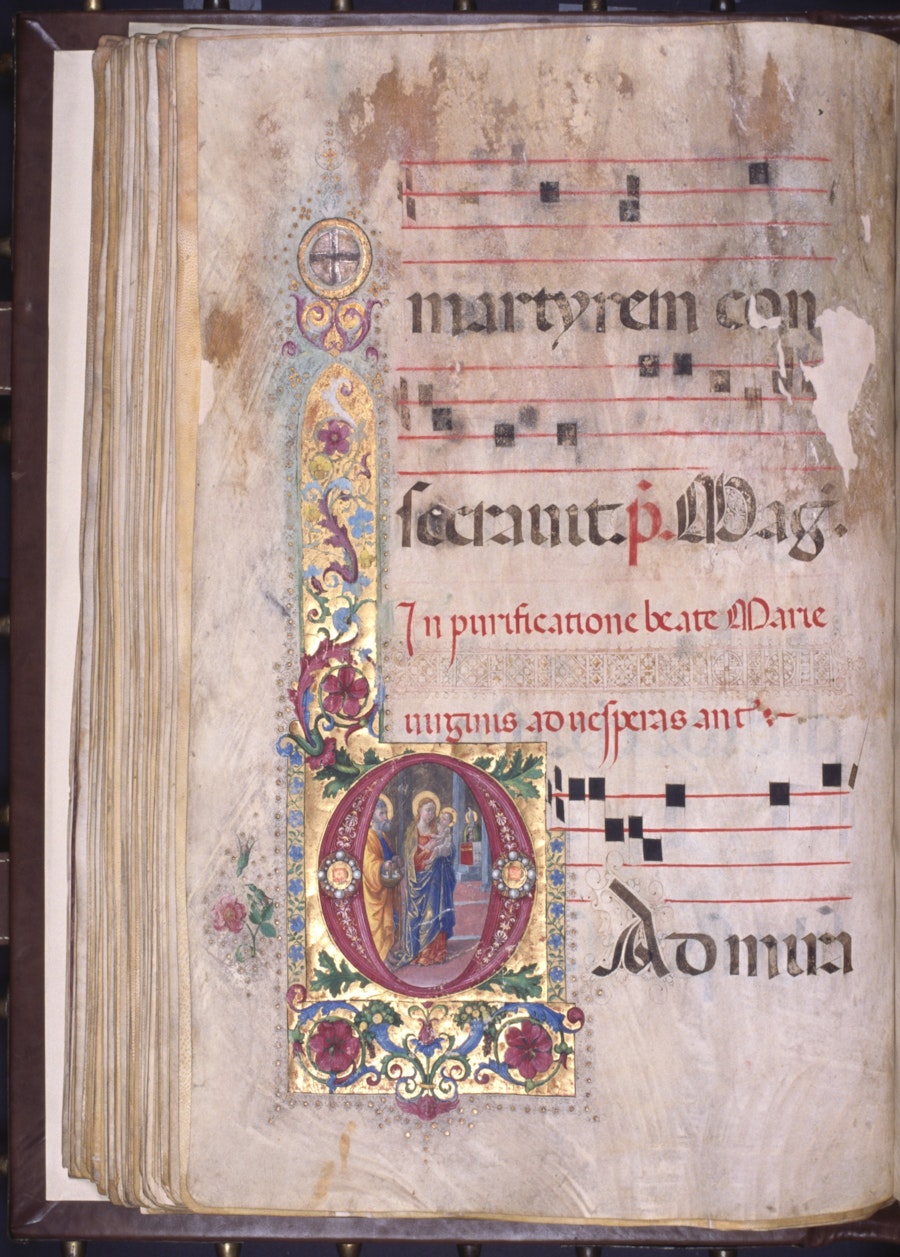 martyrem con
secravit. p̄. Maḡ.
In purificatione beate Marie
virginis ad vesperas ant̄
O Admira